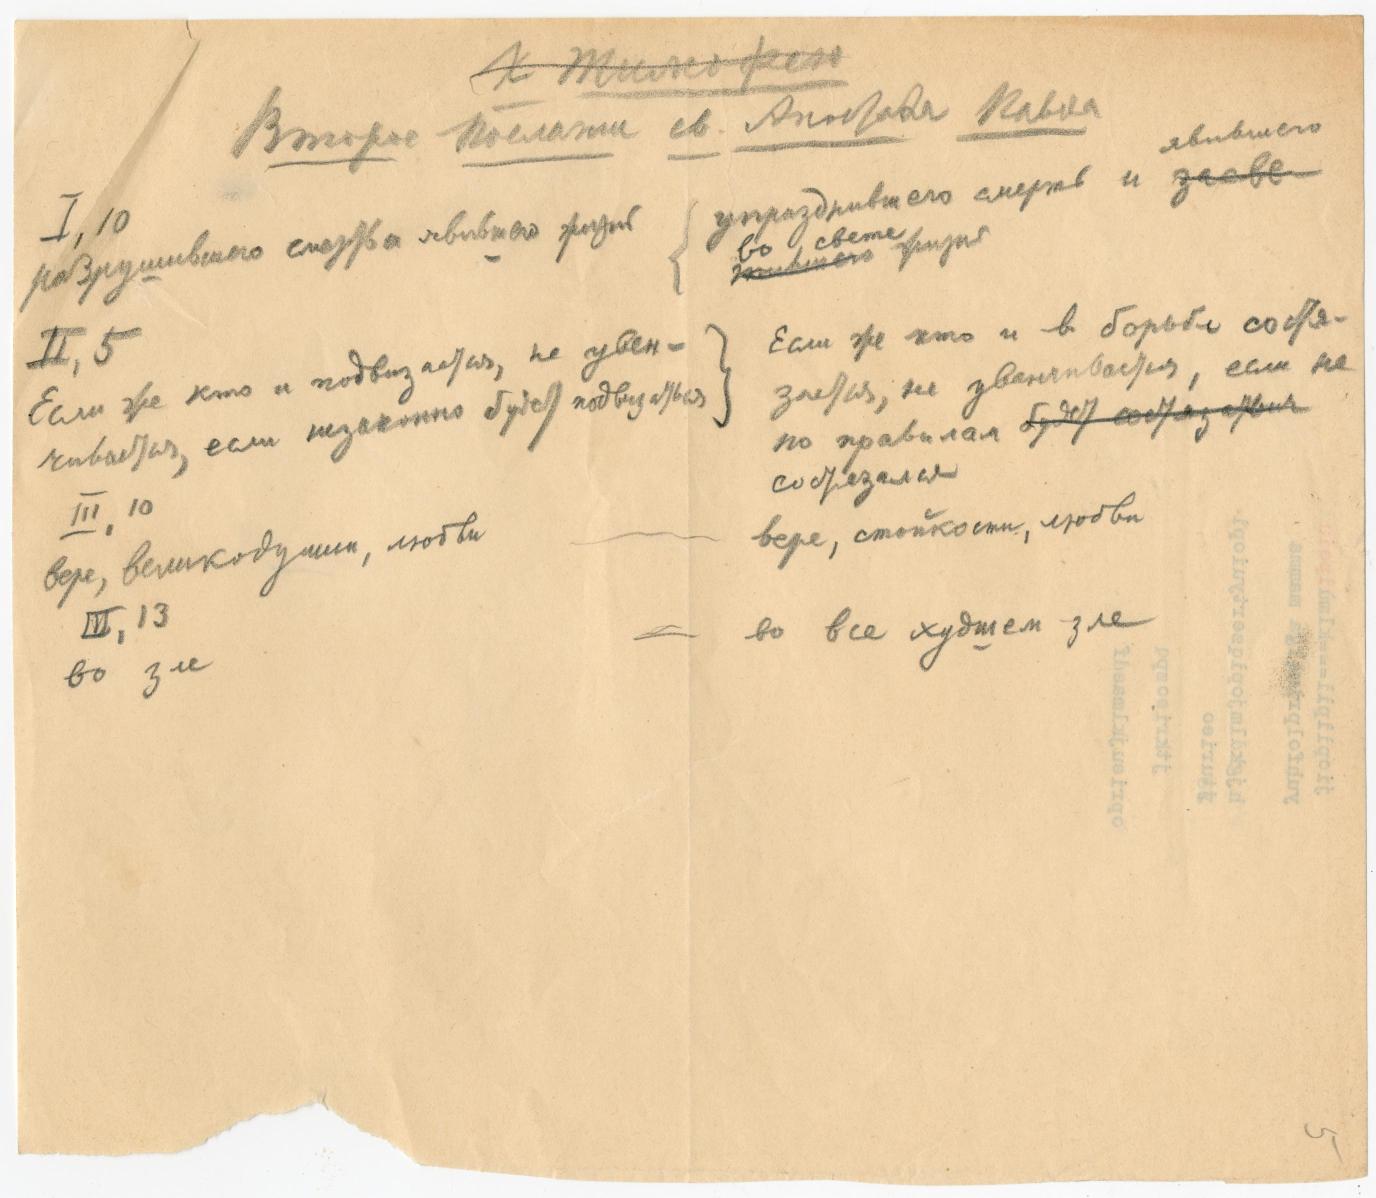 К Тимофею
Второе послание св. Апостола Павла
I, 10
разрушившего смерть и явившего жизнь
упразднившего смерть и явившего засве-
во свете
тившего жизнь
II, 5
Если же кто и подвизается, не увен-
чивается, если незаконно будет подвизаться
Если же кто и в борьбе состя-
зается, не увенчивается, если не
по правилам будет состязаться
состязался
III, 10
вере, великодушии, любви
вере, стойкости, любви
III, 13
во зле
во все худшем зле
5